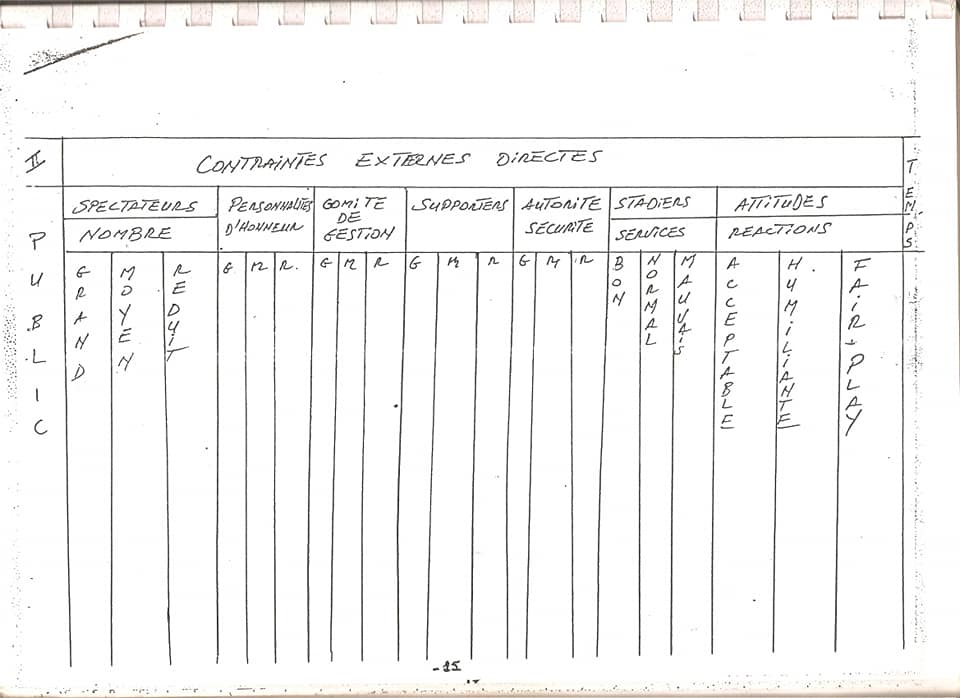 II
CONTRAINTES EXTERNES DIRECTES
TEMPS
PUBLIC
SPECTATEURS
NOMBRE
PERSONNALITÉS
D'HONNEUR
COMITE
DE
GESTION
SUPPORTERS
AUTORITE
SÉCURITE
STADIERS
SERVICES
ATTITUDES
REACTIONS
GRAND MOYEN REDUIT
G M R.
G M R
G M R
G M R
BON NORMAL MAUVAIS
ACCEPTABLE HUMILIANTE FAIR+PLAY
-15